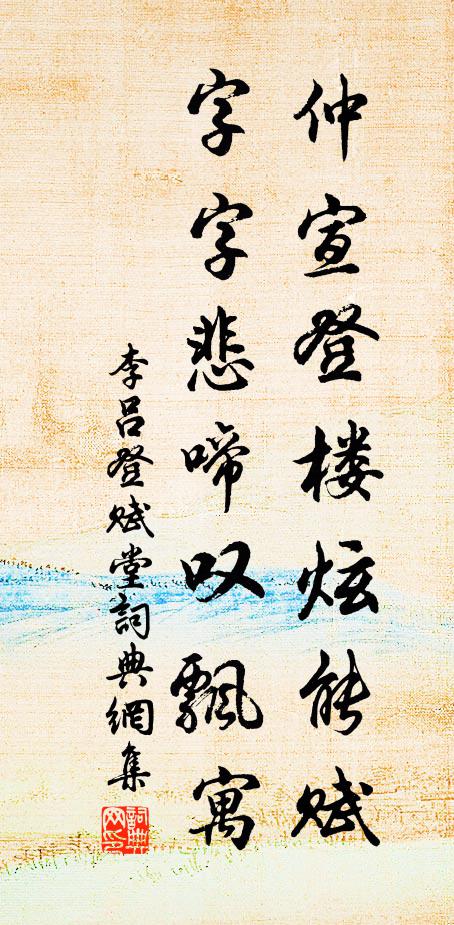 仲宣登楼炫能赋
字字悲啼叹飘寓
李吕登赋堂詞典網集
詞典网印